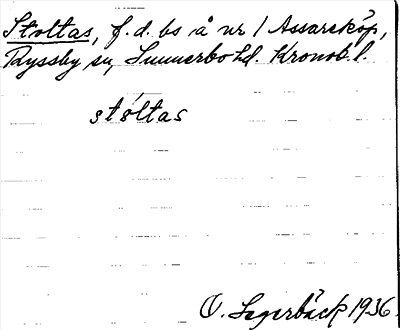 Stoltas, f.d. bs å nr 1 Assareköp,
Ryssby sn, Sunnerbo hd. Kronob. l.
stòltas
O. Lagerbäck 1936.